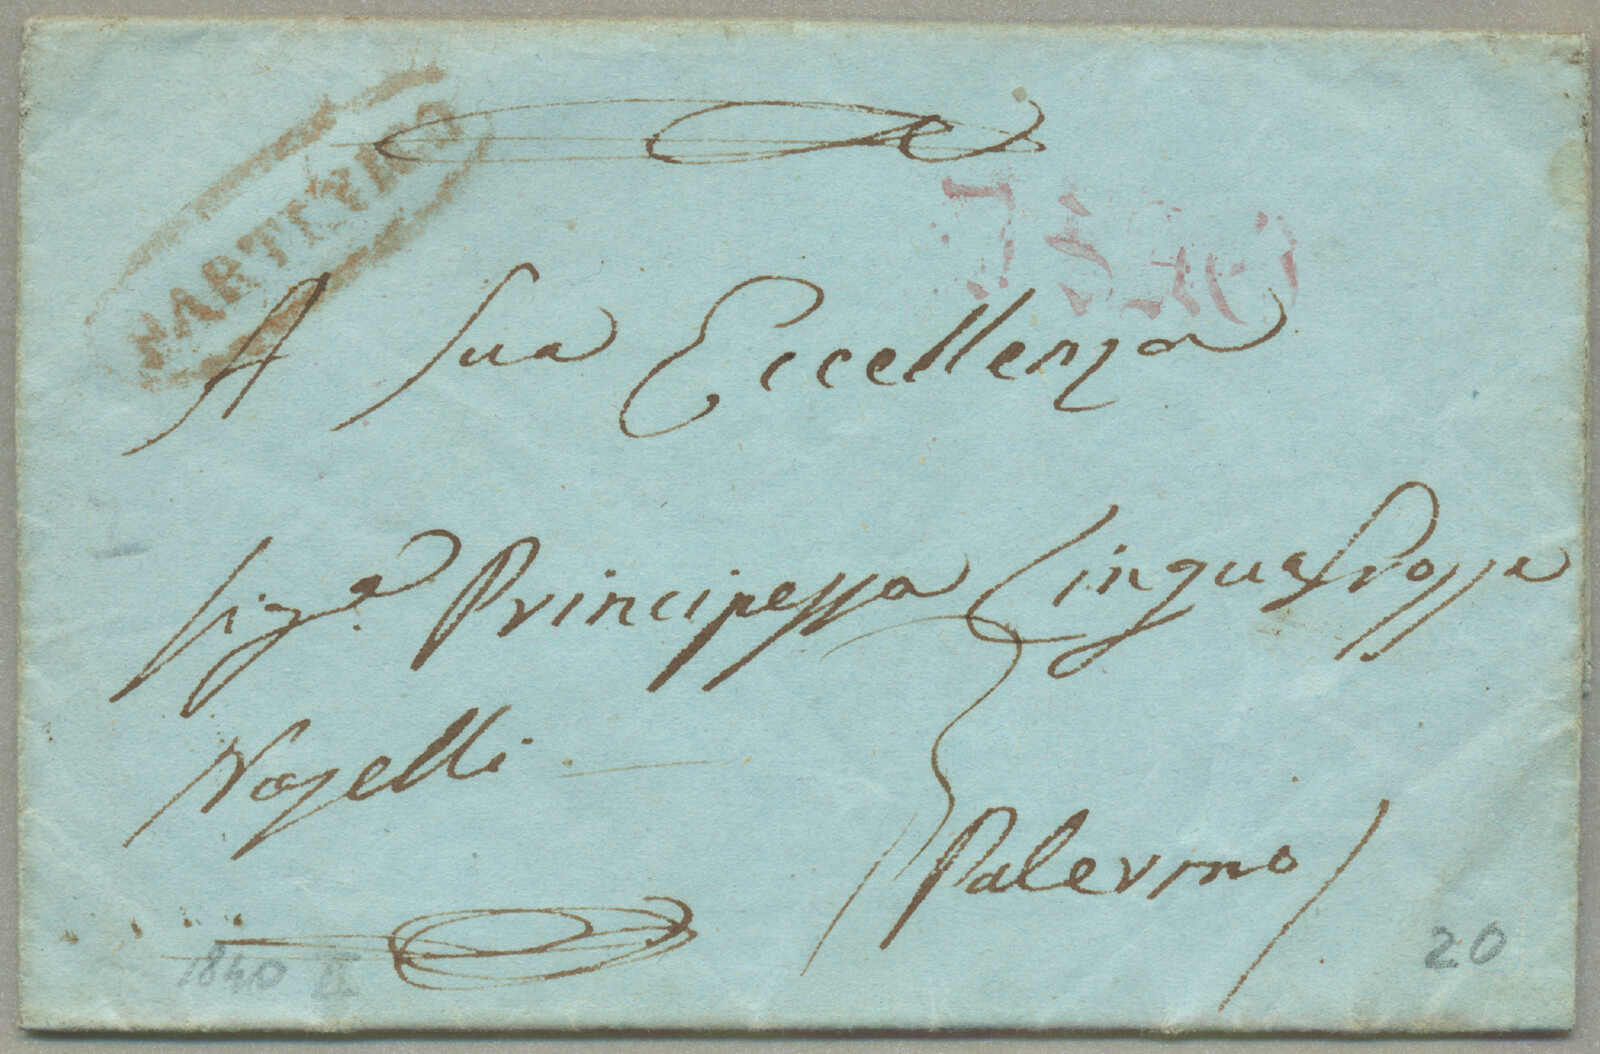 PARTINICO
A Sua Eccellenza
Sig.a Principessa Linguagrossa
Naselli
Palermo
1840 II
20